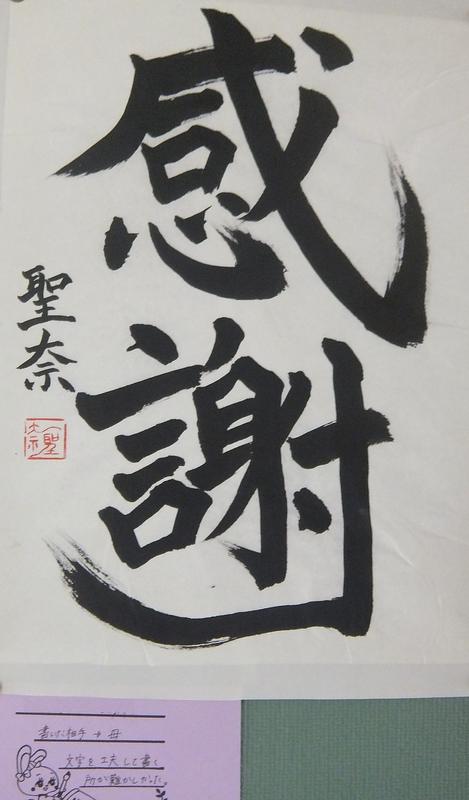 感謝
聖奈
聖奈
書いた相手→母
文字を工夫して書く
所が難かしかった。